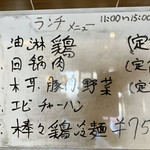 ランチメニュー 11:00～15:00
・油淋鶏 (定
・回鍋肉 (定
・木耳、豚肉、野菜 (定
・エビチャーハン
・棒々鶏冷麺 ¥75